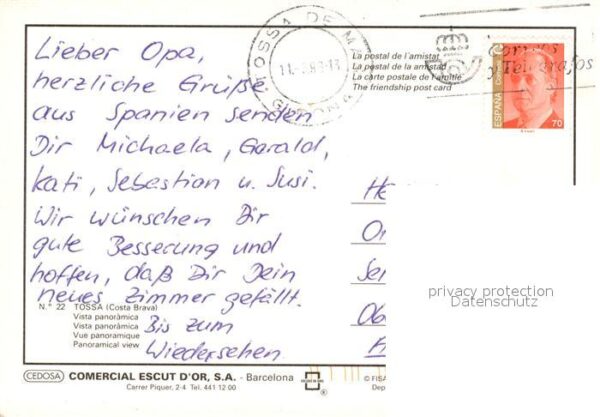 Lieber Opa,
herzliche Grüße
aus Spanien senden
Dir Michaela, Gerald,
Kati, Sebastian u. Susi.
Wir wünschen Dir
gute Besserung und
hoffen, daß Dir Dein
neues Zimmer gefällt.
Bis zum
Wiedersehen
N.° 22 TOSSA (Costa Brava)
Vista panorámica
Vista panoràmica
Vue panoramique
Panoramical view
TOSSA DE MAR
GIRONA
La postal de l'amistat
La postal de la amistad
La carte postale de l'amitié
The friendship post card
Correos
y Telégrafos
ESPAÑA Correos
70
privacy protection
Datenschutz
CEDOSA COMERCIAL ESCUT D'OR, S.A. - Barcelona
Carrer Piquer, 2-4 Tel. 441 12 00
© FISA
Dep